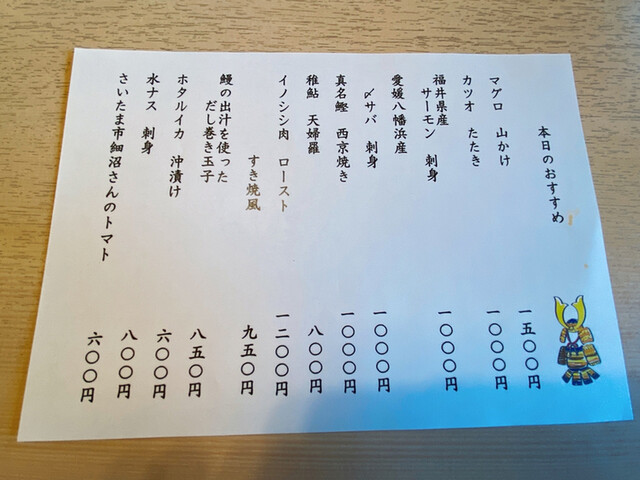 本日のおすすめ
マグロ 山かけ 一五〇〇円
カツオ たたき 一〇〇〇円
福井県産
サーモン 刺身 一〇〇〇円
愛媛八幡浜産
〆サバ 刺身 一〇〇〇円
真名鰹 西京焼き 一〇〇〇円
稚鮎 天婦羅 八〇〇円
イノシシ肉 ロースト 一二〇〇円
すき焼風 九五〇円
鰻の出汁を使った
だし巻き玉子 八五〇円
ホタルイカ 沖漬け 六〇〇円
水ナス 刺身 八〇〇円
さいたま市細沼さんのトマト 六〇〇円